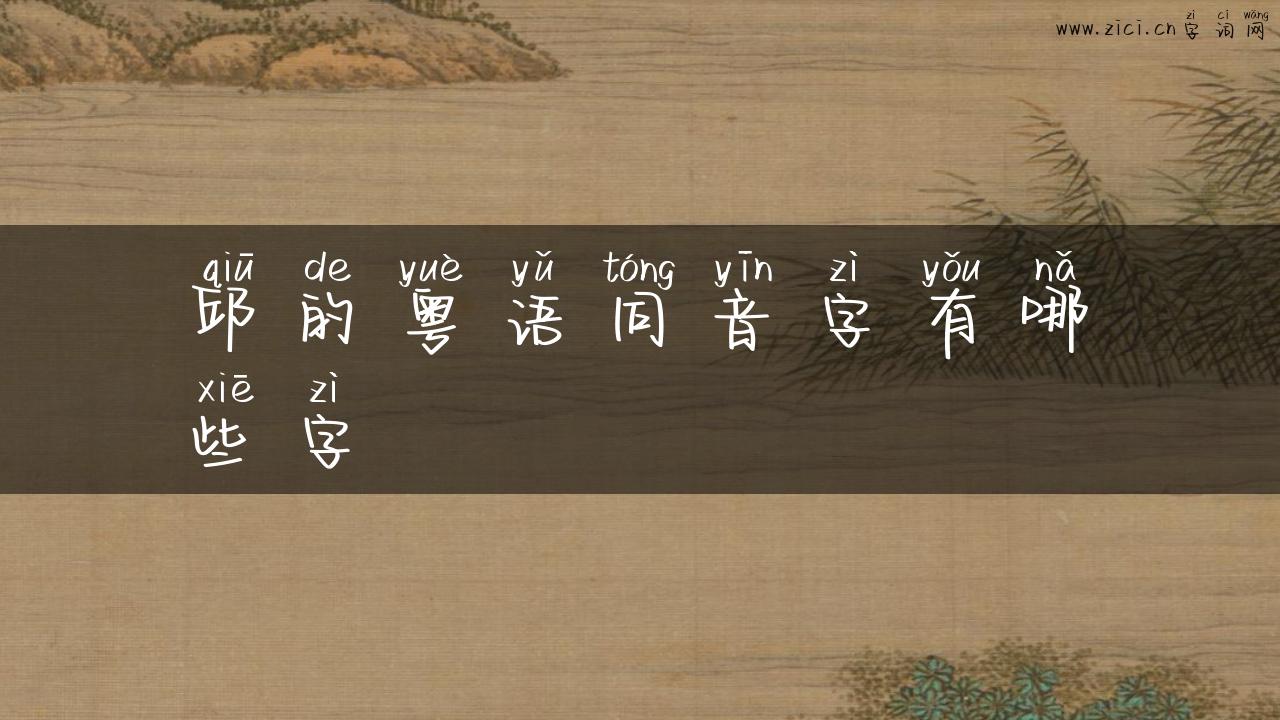 zì cí wǎng
www.zici.cn 字 词 网
qiū de yuè yǔ tóng yīn zì yǒu nǎ
邱 的 粤 语 同 音 字 有 哪
xiē zì
些 字